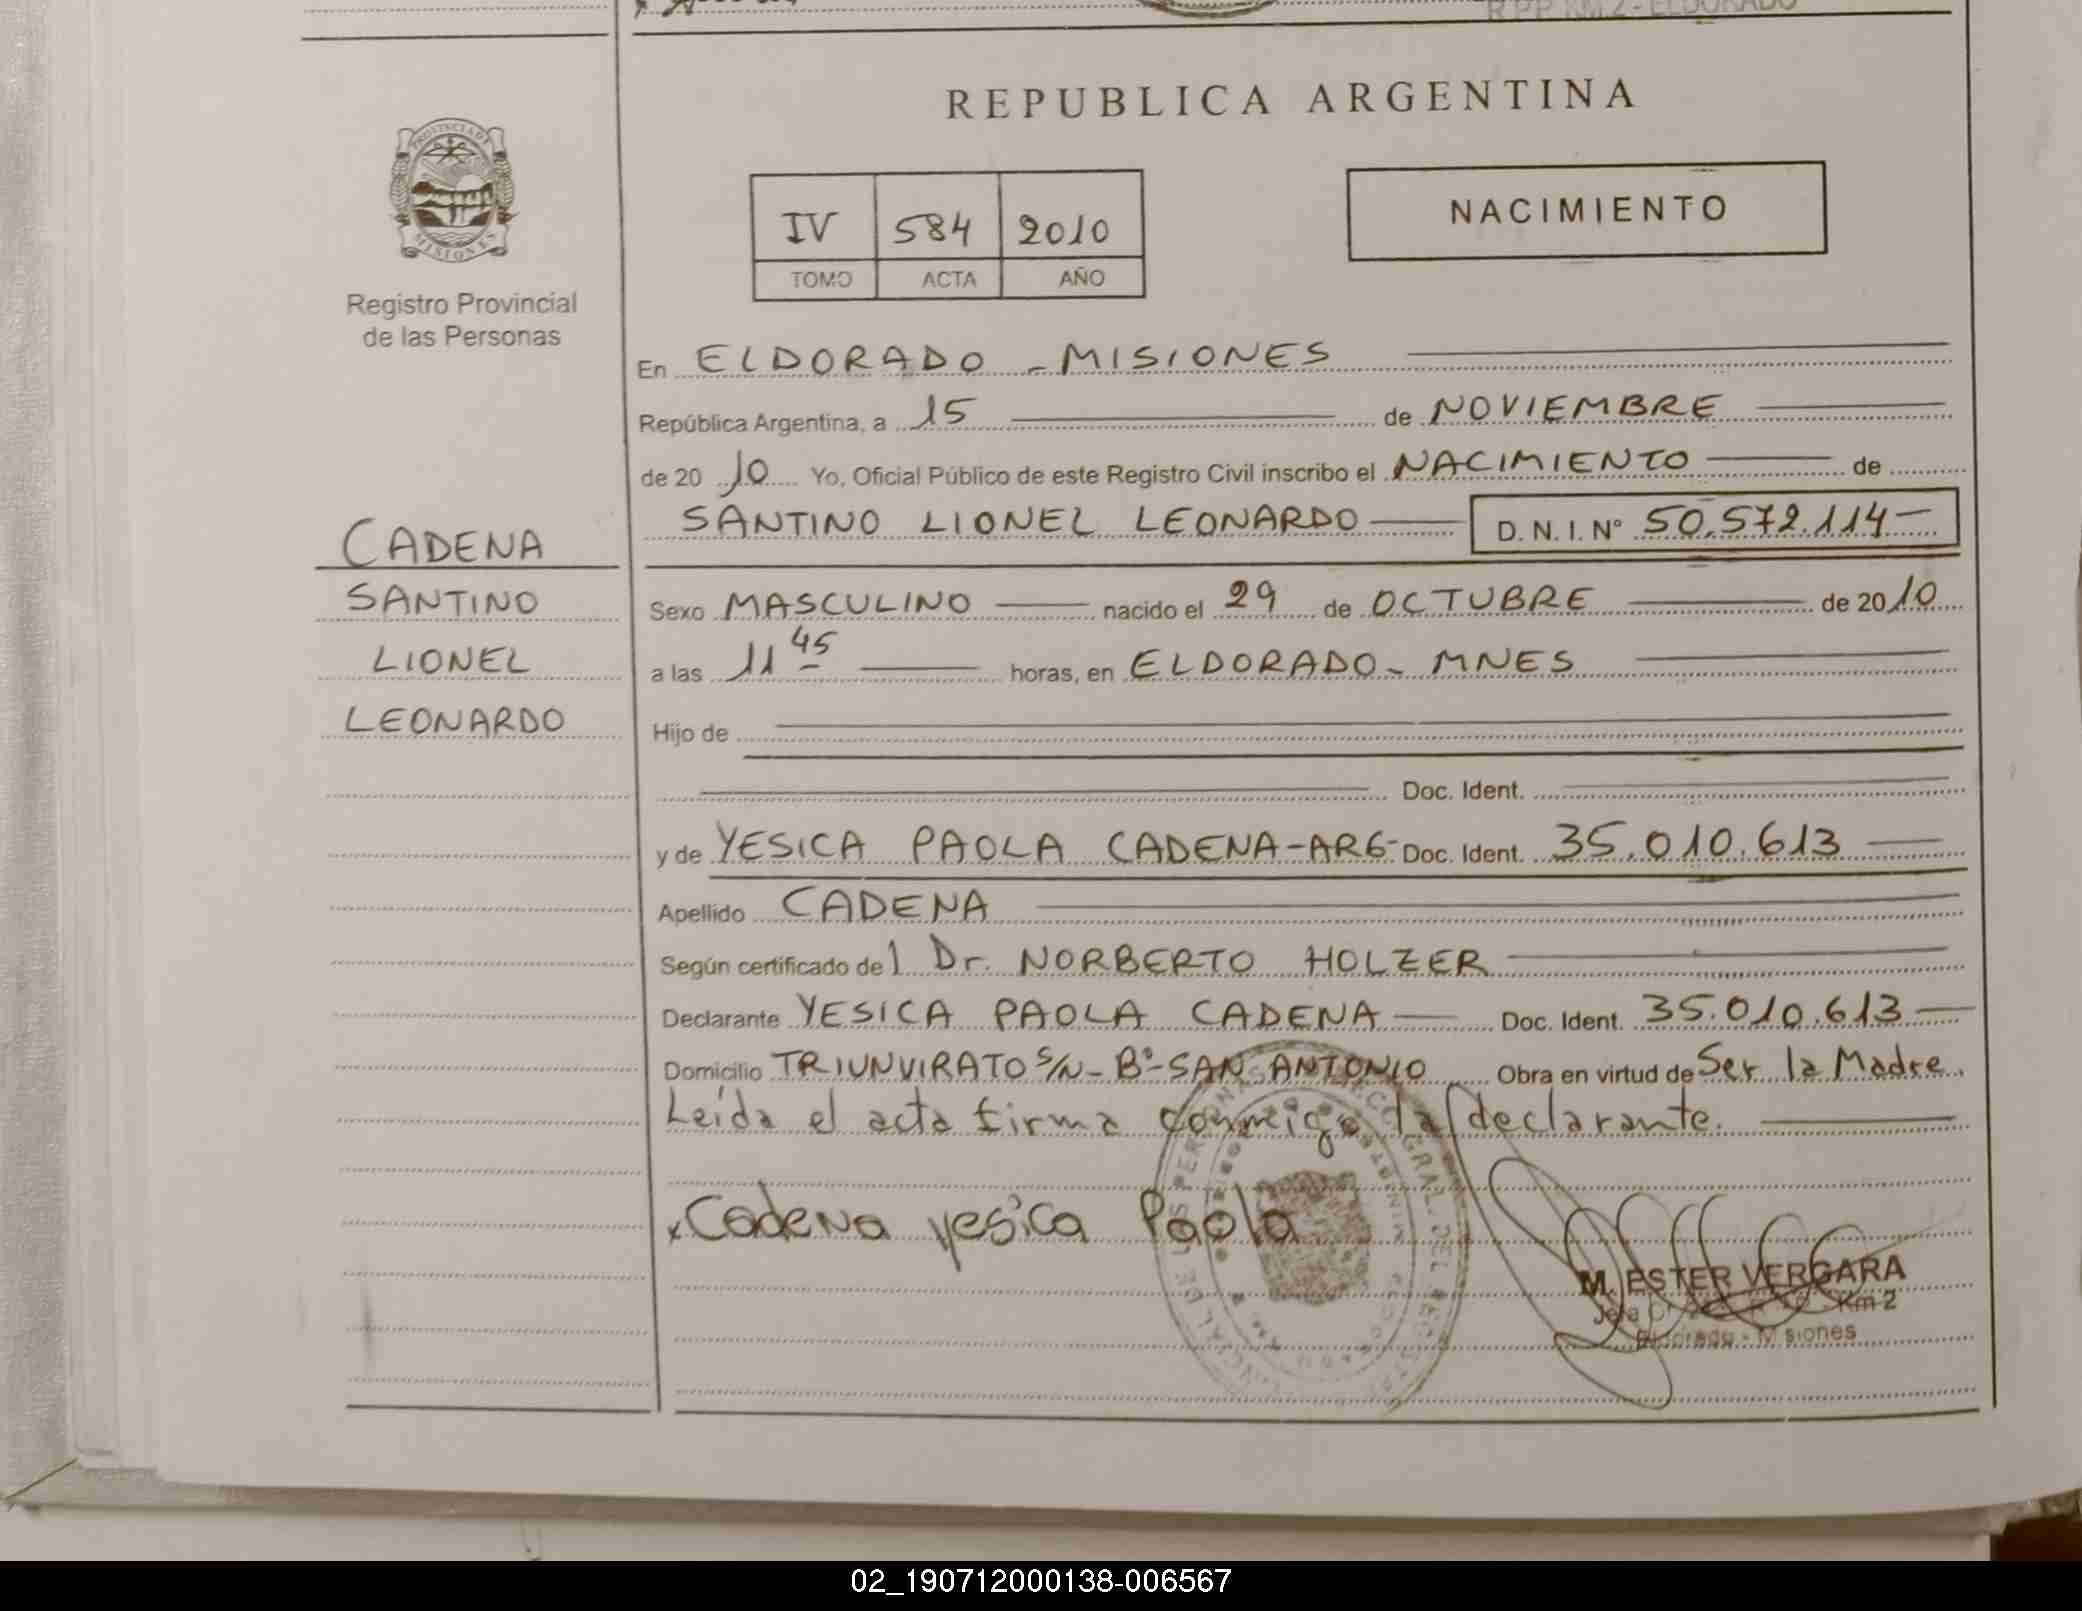 REPUBLICA ARGENTINA
PROVINCIA DE
MISIONES
Registro Provincial
de las Personas
IV 584 2010
TOMO ACTA AÑO
NACIMIENTO
CADENA
SANTINO
LIONEL
LEONARDO
En ELDORADO - MISIONES
República Argentina, a 15 de NOVIEMBRE
de 20 10 Yo, Oficial Público de este Registro Civil inscribo el NACIMIENTO de
SANTINO LIONEL LEONARDO D. N. I. N° 50.572.114-
Sexo MASCULINO nacido el 29 de OCTUBRE de 2010
a las 11 45 horas, en ELDORADO - MNES
Hijo de
Doc. Ident.
y de YESICA PAOLA CADENA-ARG- Doc. Ident. 35.010.613
Apellido CADENA
Según certificado del Dr. NORBERTO HOLZER
Declarante YESICA PAOLA CADENA Doc. Ident. 35.010.613
Domicilio TRIUNVIRATO S/N - B°- SAN ANTONIO Obra en virtud de Ser la Madre.
Leída el acta firma conmigo la declarante.
x Cadena yesica Paola
M. ESTER VERGARA
Km 2
Eldorado - Misiones
02_190712000138-006567